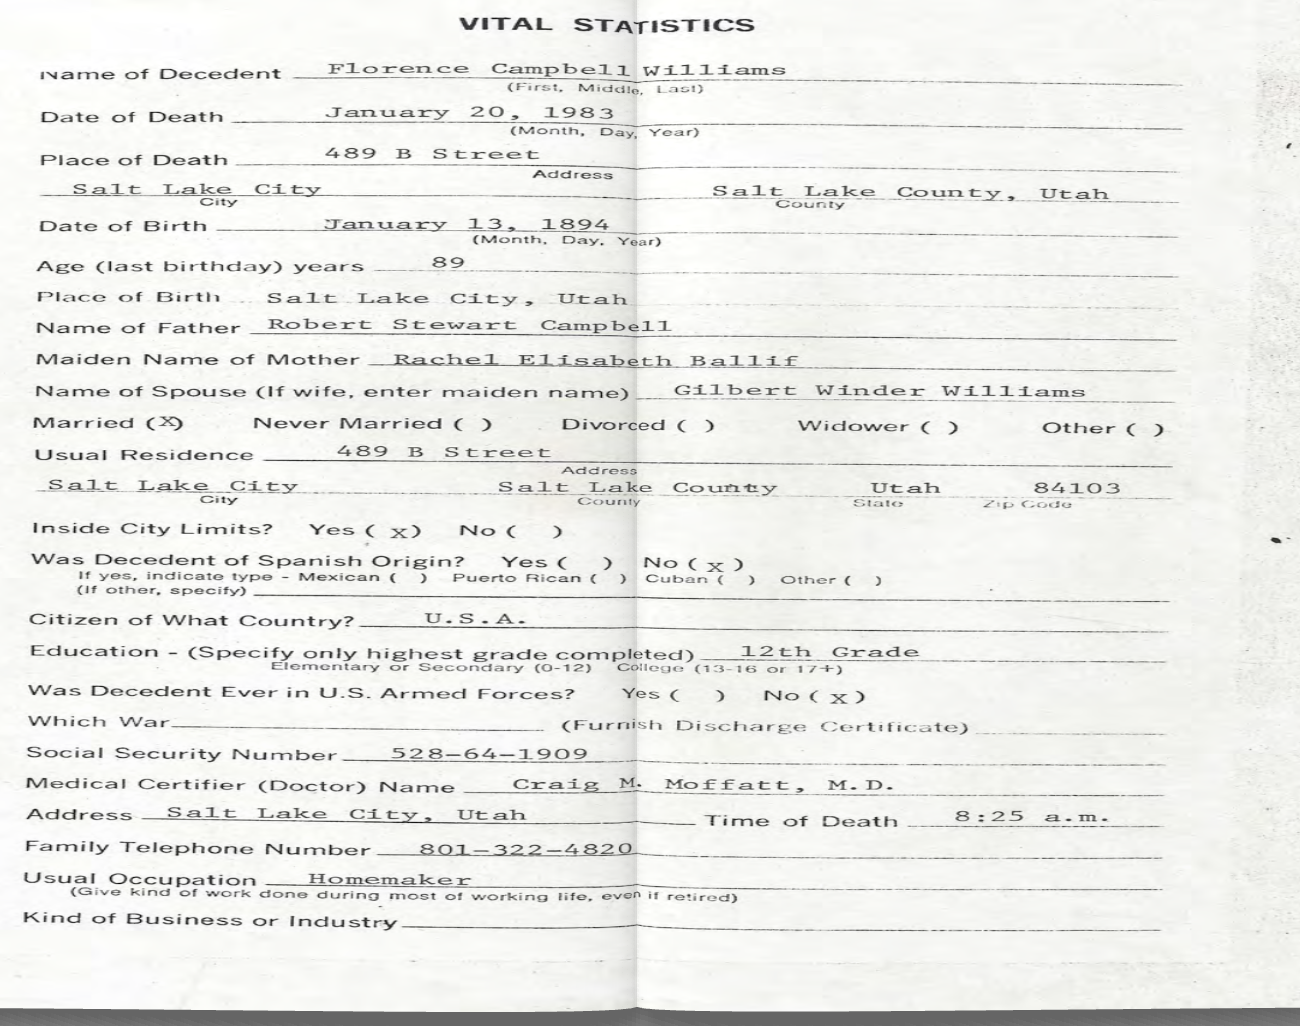 VITAL STATISTICS
Name of Decedent Florence Campbell Williams
(First, Middle, Last)
Date of Death January 20, 1983
(Month, Day, Year)
Place of Death 489 B Street
Address
Salt Lake City Salt Lake County, Utah
City County
Date of Birth January 13, 1894
(Month, Day, Year)
Age (last birthday) years 89
Place of Birth Salt Lake City, Utah
Name of Father Robert Stewart Campbell
Maiden Name of Mother Rachel Elisabeth Ballif
Name of Spouse (If wife, enter maiden name) Gilbert Winder Williams
Married (X) Never Married ( ) Divorced ( ) Widower ( ) Other ( )
Usual Residence 489 B Street
Address
Salt Lake City Salt Lake County Utah 84103
City County State Zip Code
Inside City Limits? Yes ( x ) No ( )
Was Decedent of Spanish Origin? Yes ( ) No ( x )
If yes, indicate type - Mexican ( ) Puerto Rican ( ) Cuban ( ) Other ( )
(If other, specify)
Citizen of What Country? U.S.A.
Education - (Specify only highest grade completed) 12th Grade
Elementary or Secondary (0-12) College (13-16 or 17+)
Was Decedent Ever in U.S. Armed Forces? Yes ( ) No ( x )
Which War (Furnish Discharge Certificate)
Social Security Number 528-64-1909
Medical Certifier (Doctor) Name Craig M. Moffatt, M.D.
Address Salt Lake City, Utah Time of Death 8:25 a.m.
Family Telephone Number 801-322-4820
Usual Occupation Homemaker
(Give kind of work done during most of working life, even if retired)
Kind of Business or Industry